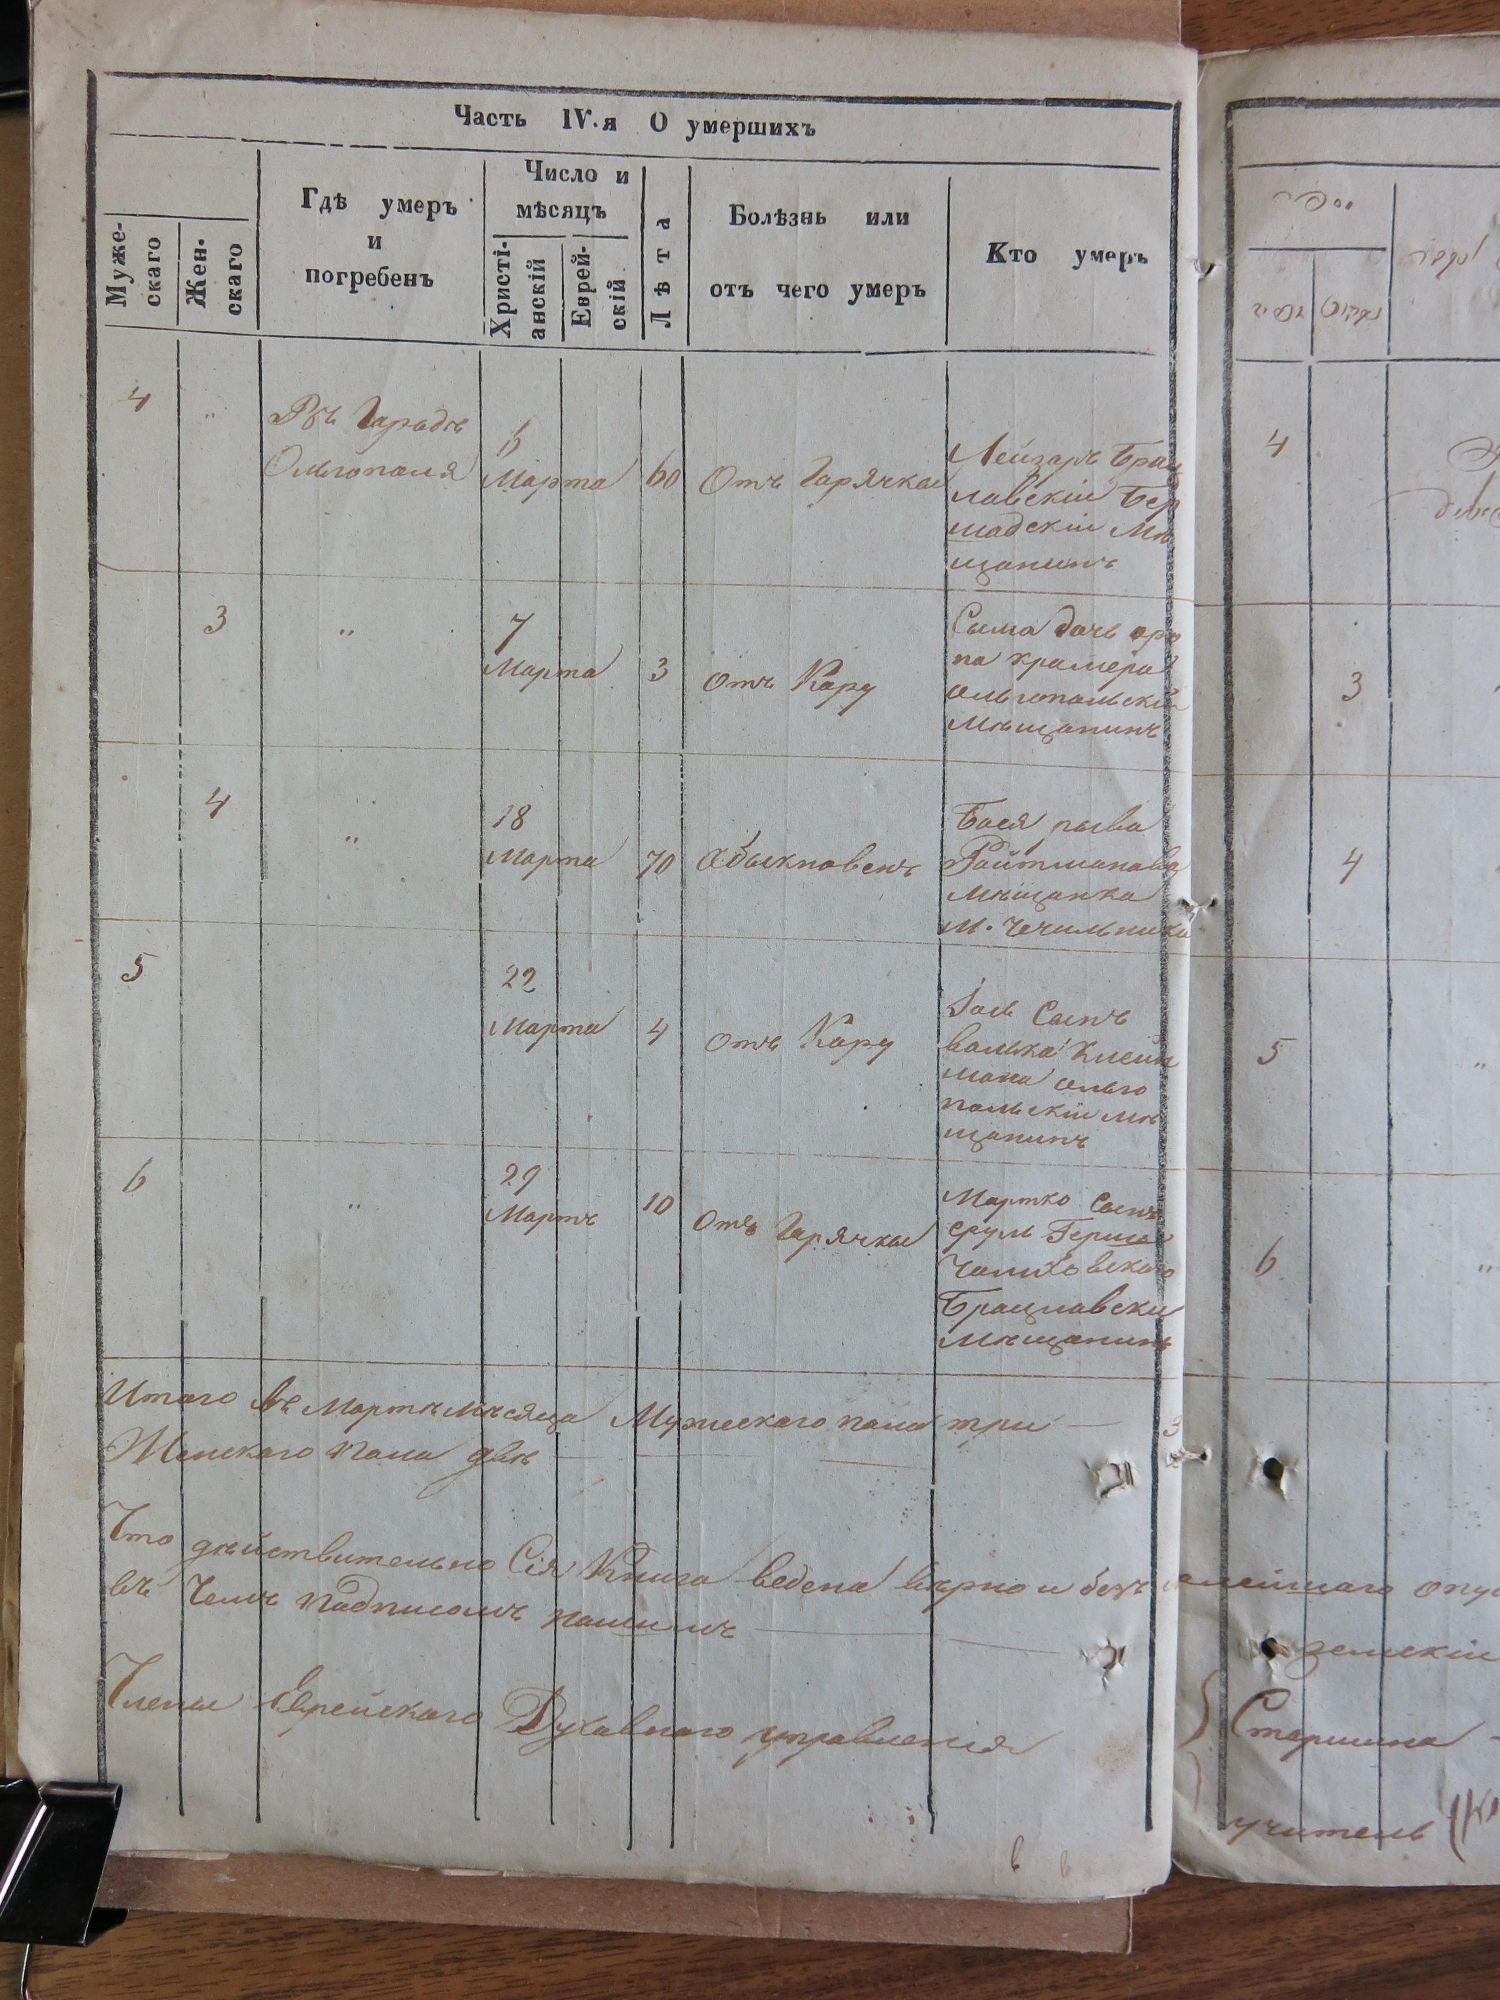 Часть IV.я О умершихъ
Муже-
скаго
Жен-
скаго
Гдѣ умеръ
и
погребенъ
Число и
мѣсяцъ
Христі-
анскій
Еврей-
скій
Лѣта
Болѣзнь или
отъ чего умеръ
Кто умеръ
4 "
Въ Гарадѣ
Ольгополя
Марта
60
Отъ Гарячки
Лейзаръ Брац
лавскій Бер
шадскій Мѣ
щанинъ
3 "
7
Марта
3
отъ Кору
Сыма дочь
крамера
ольгопольскій
Мѣщанинъ
4 "
18
Марта
70
Абыкновенъ
Бася рыва
Райтманава
Мѣщанка
м. Чечильника
5
22
Марта
4
отъ Кору
Сынъ
валька Клейн
мана ольго
польскій мѣ
щанинъ
6 "
29
Мартъ
10
отъ Гарячки
Мартко Сынъ
сруль Герша
Брацлавски
Мѣщанинъ
Итаго въ Мартѣ мѣсяца Мужескаго пала три — 3
Женскаго пала двѣ
Что дѣйствительно Сія Книга ведена вѣрно и безъ
въ Чемъ падписомъ нашимъ
Члены Еврейскаго Духавнаго управленія
4
3
4
5 "
6 "
земскій
Старшина
учитель